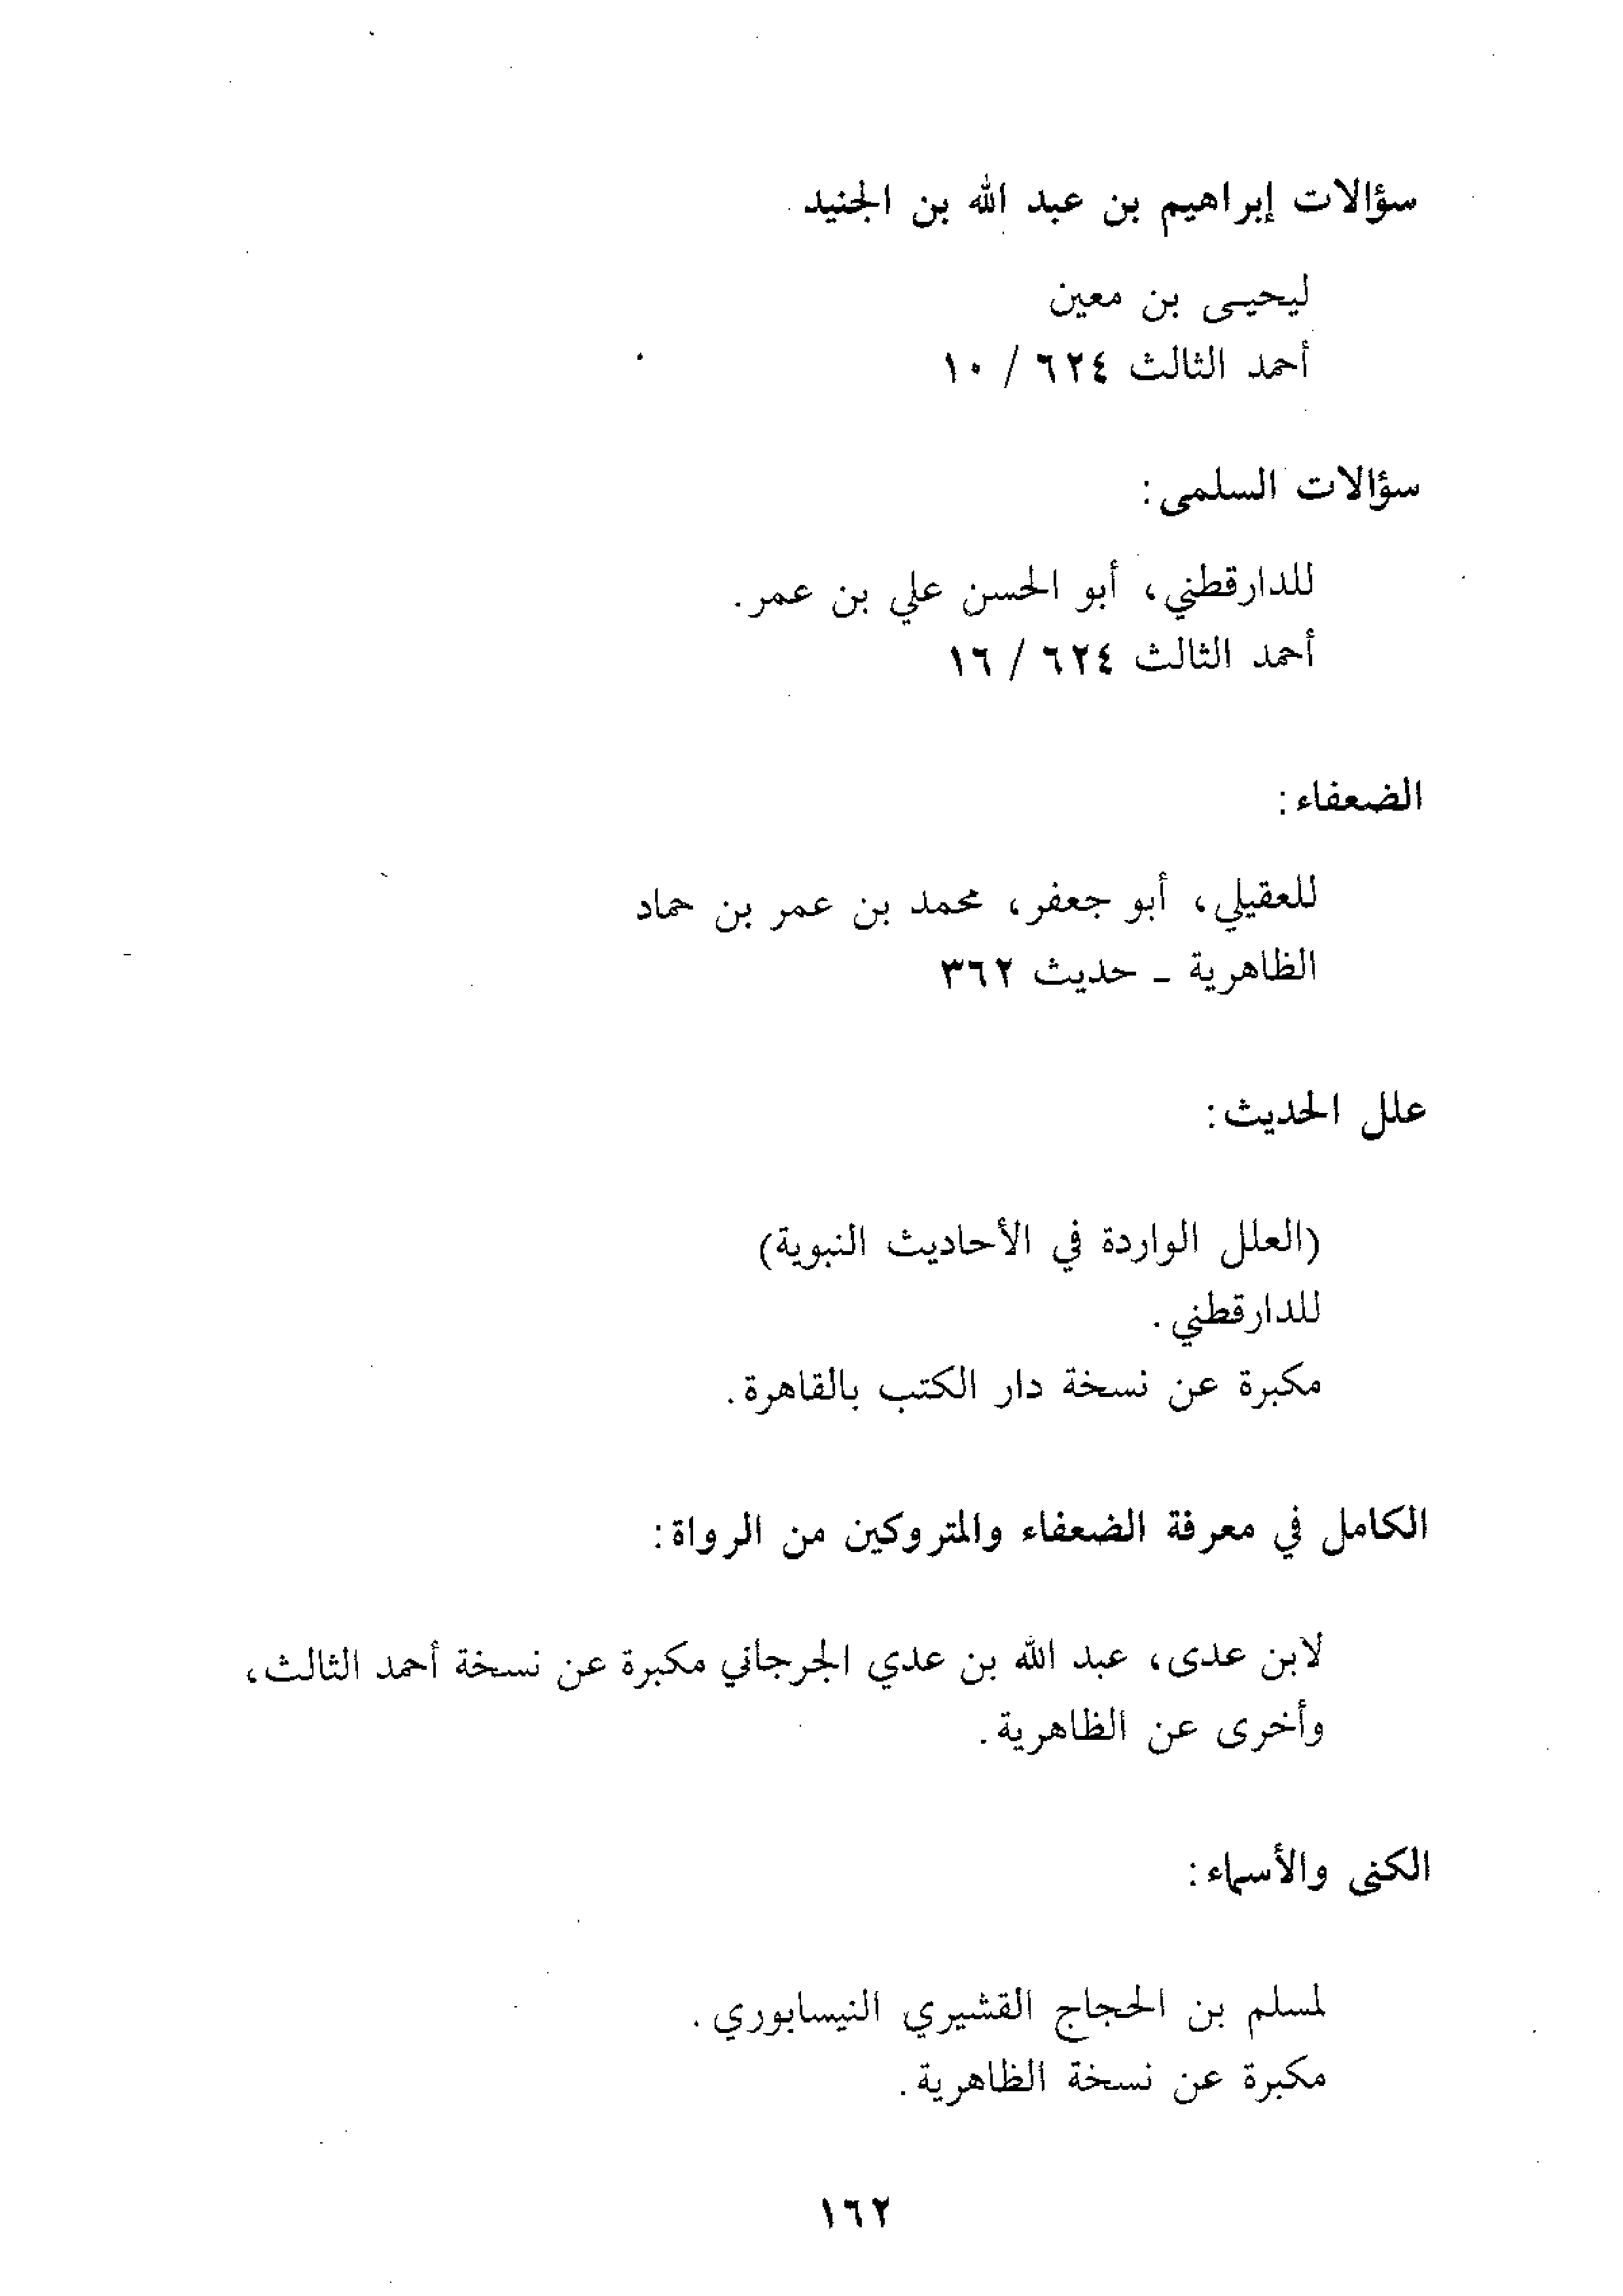 سؤالات إبراهيم بن عبد الله بن الجنيد
ليحيى بن معين
أحمد الثالث ٦٢٤ / ١٠
سؤالات السلمى:
للدارقطني، أبو الحسن علي بن عمر.
أحمد الثالث ٦٢٤ / ١٦
الضعفاء:
للعقيلي، أبو جعفر، محمد بن عمر بن حماد
الظاهرية - حديث ٣٦٢
علل الحديث:
(العلل الواردة في الأحاديث النبوية)
للدارقطني.
مكبرة عن نسخة دار الكتب بالقاهرة.
الكامل في معرفة الضعفاء والمتروكين من الرواة:
لابن عدى، عبد الله بن عدي الجرجاني مكبرة عن نسخة أحمد الثالث،
وأخرى عن الظاهرية.
الكنى والأسماء:
لمسلم بن الحجاج القشيري النيسابوري.
مكبرة عن نسخة الظاهرية.
١٦٢